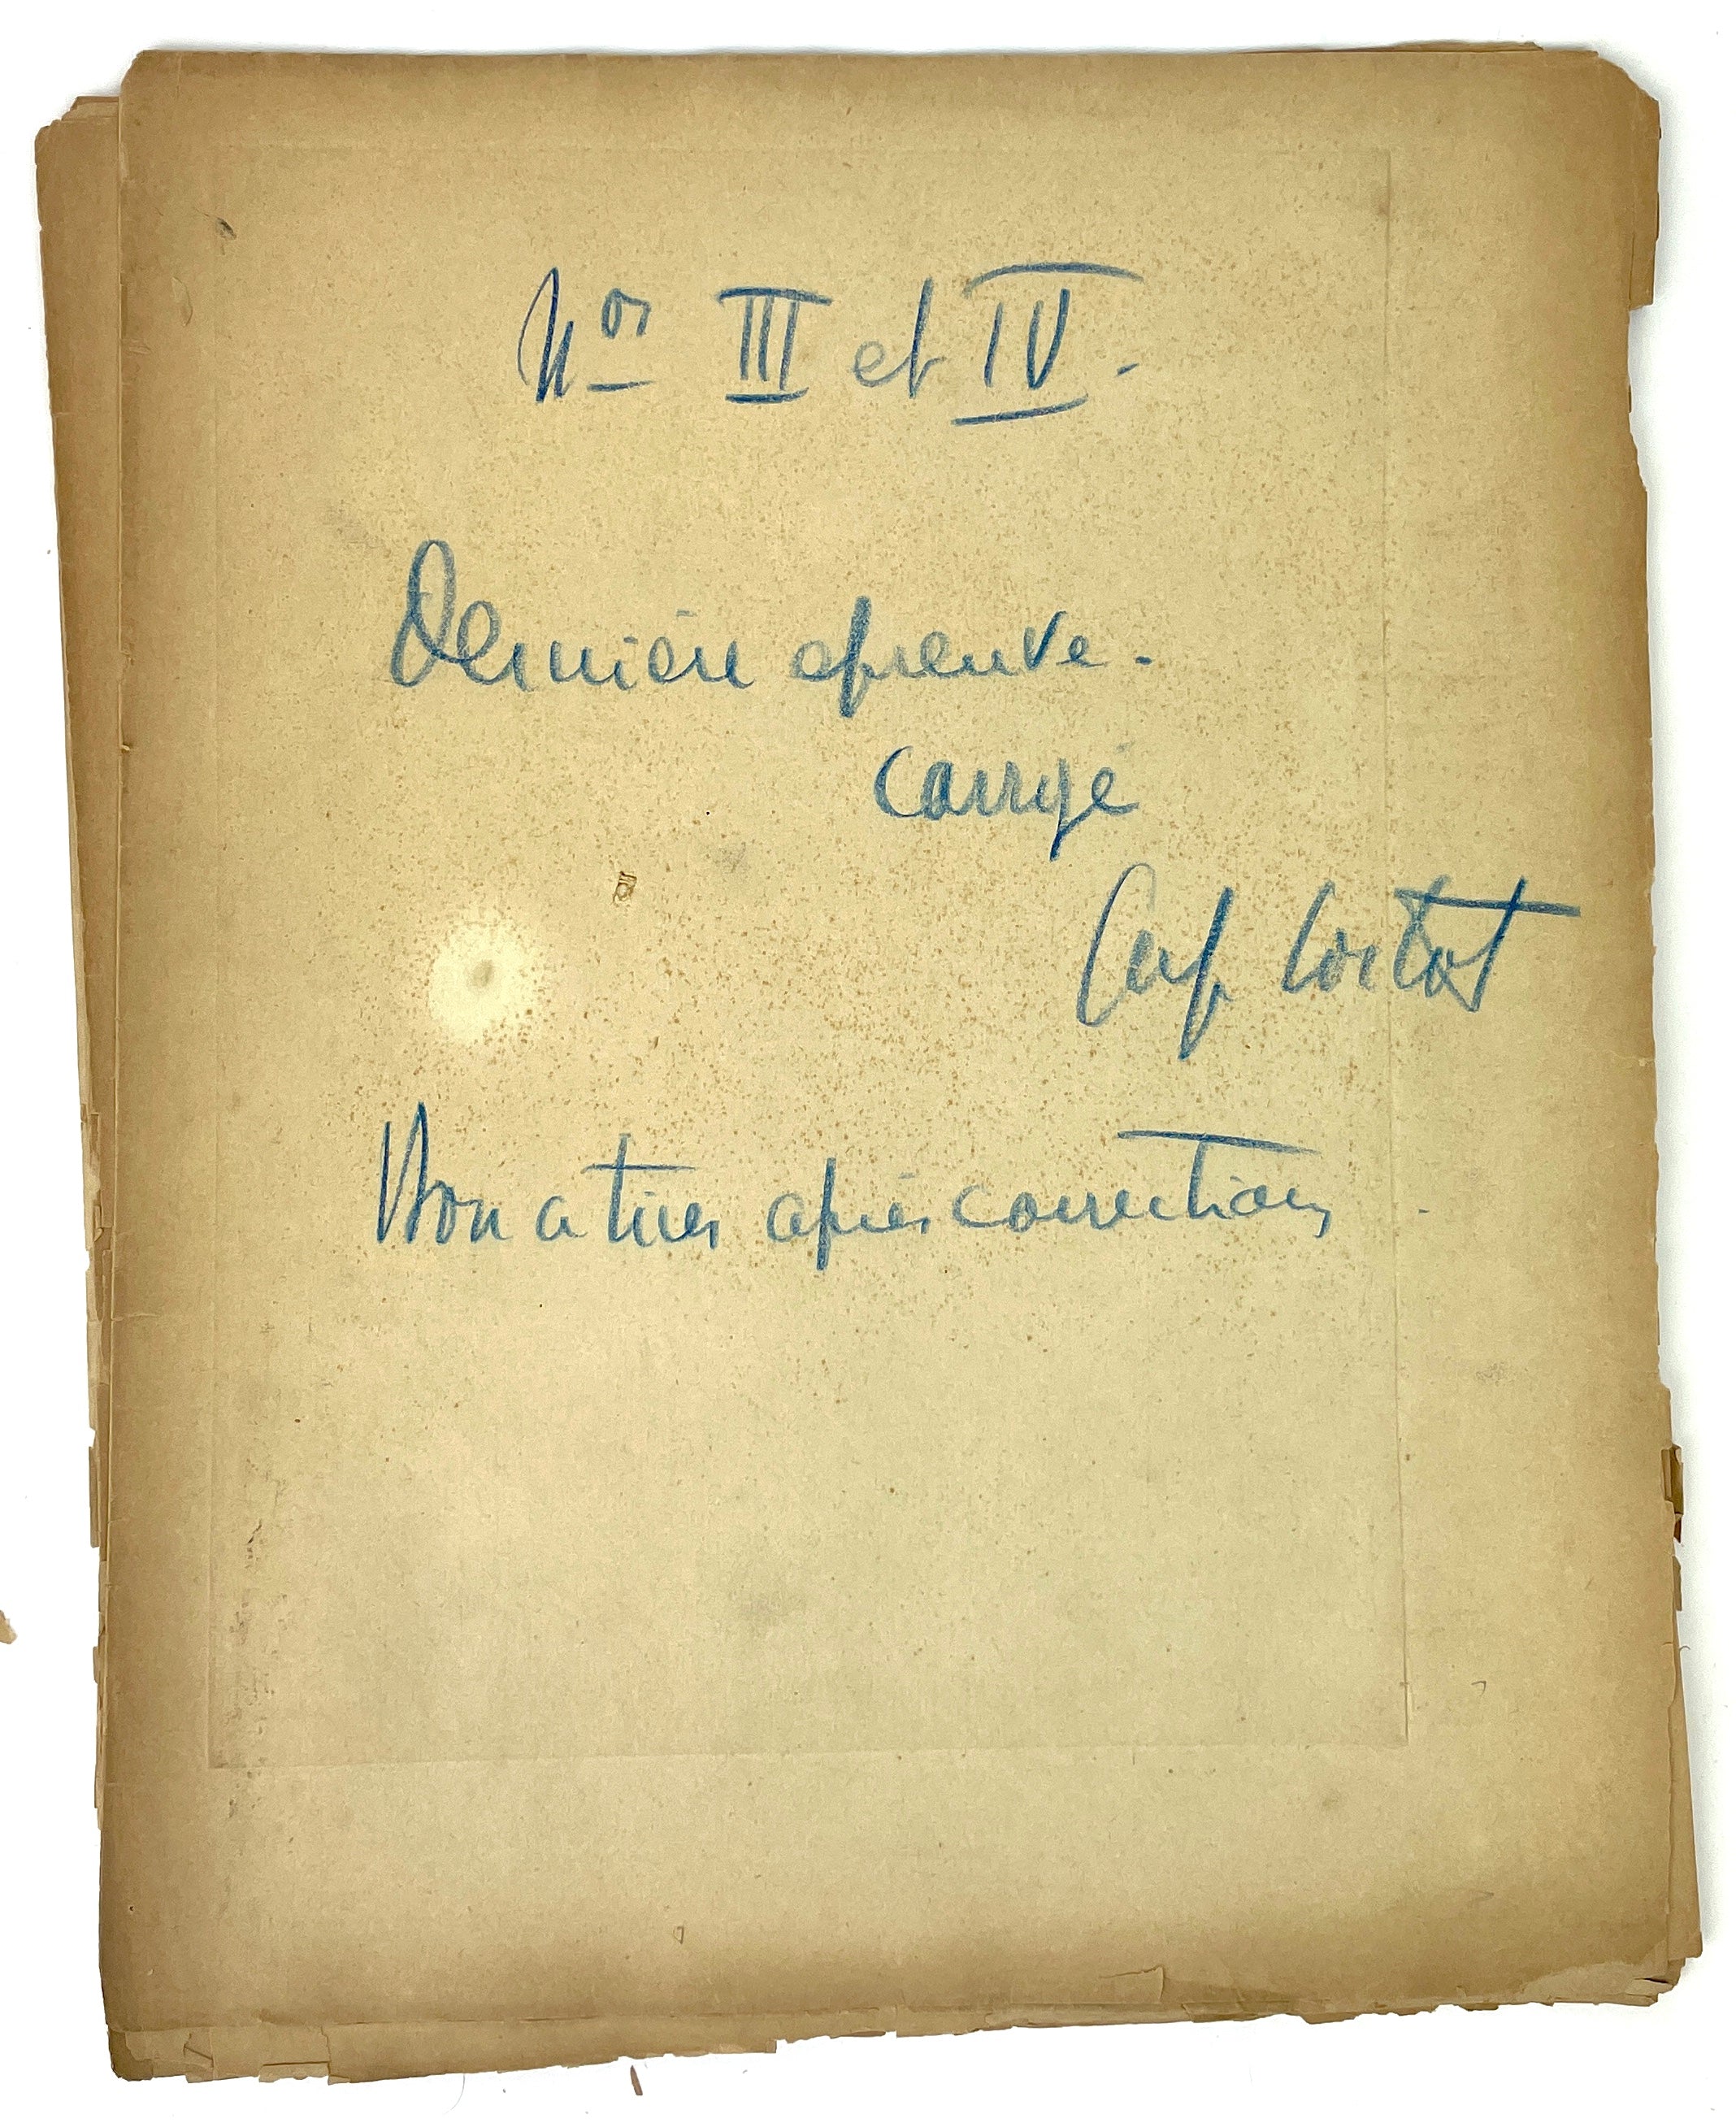 Nos III et IV.
Dernière epreuve.
corrigé
Alf Cortot
Bon a tirer après corrections